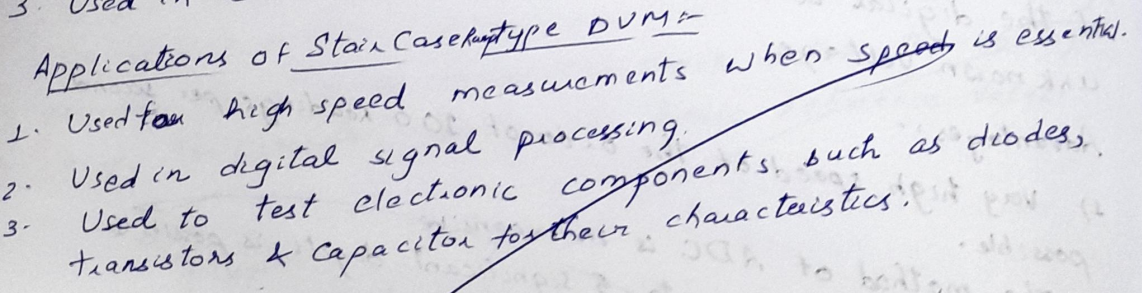 3. Used in
Applications of Stair Case Ramptype DVM:-
1. Used for high speed measurements when speed is essential.
2. Used in digital signal processing.
3. Used to test electronic components, such as diodes,
transistors & capacitor for their characteristics.